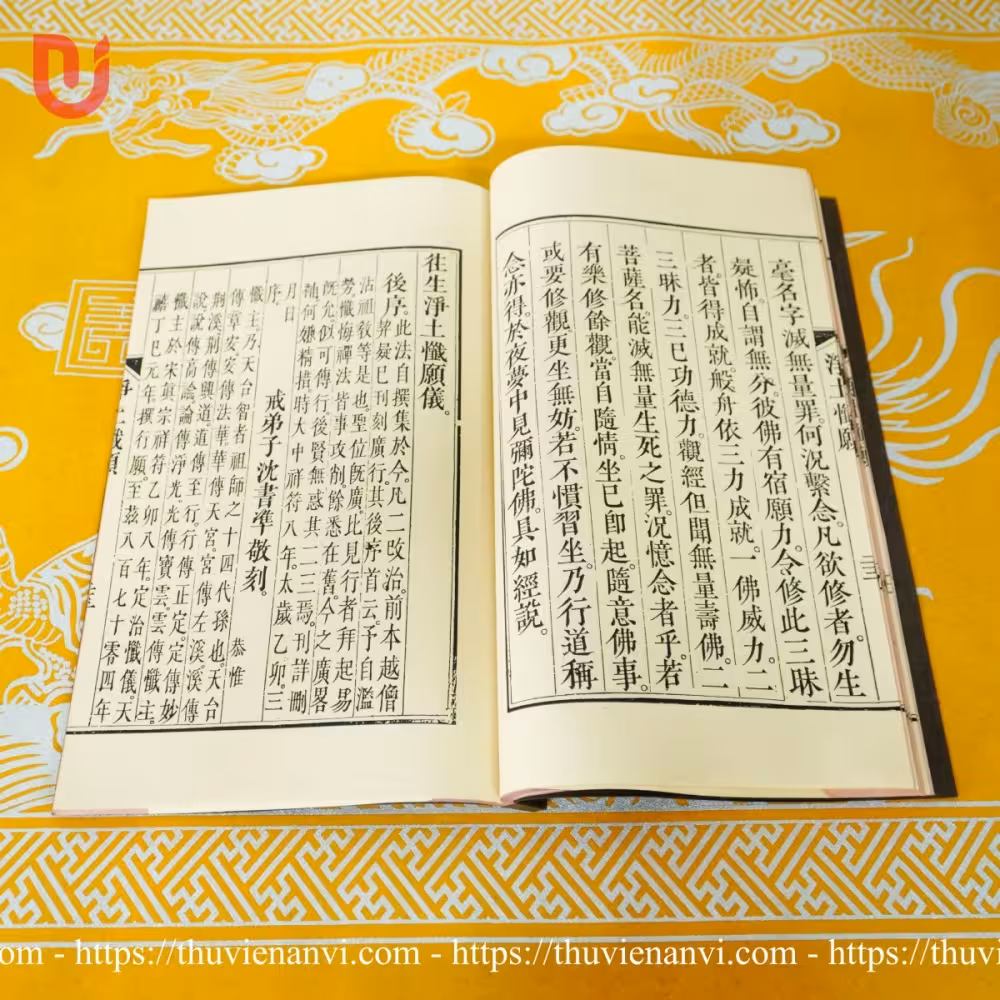 毫名字滅無量罪何況繫念。凡欲修者。勿生
疑怖。自謂無分。彼佛有宿願力。令修此三昧
者。皆得成就。般舟依三力成就。一佛威力。二
三昧力。三巳功德力。觀經但聞無量壽佛。二
菩薩名。能滅無量生死之罪。況憶念者乎。若
有樂修餘觀當自隨情。坐巳卽起。隨意佛事。
或要修觀更坐無妨。若不慣習坐。乃行道稱
念亦得。於夜夢中見彌陀佛。具如經說。
往生淨土懺願儀。
後序。此法自撰集於今。凡二改治。前本越僧
契凝巳刊刻廣行。其後序首云。予自濫
沾祖敎等是也聖位旣廣比見行者拜起易
勞懺悔禪法皆事攻削餘悉在舊。今之廣畧
旣允似可傳行後賢無惑其二三焉。刊詳刪
補何嫌精措時大中祥符八年。太歲乙卯。三
月日
序。
戒弟子沈書準敬刻。
懺主乃天台智者祖師之十四代孫也。恭惟
傳章安安傳法華。華傳天宮。宮傳左溪。溪傳
荆溪。荆傳興道。道傳至行。行傳正定。定傳妙
說。說傳高論。論傳淨光。光傳寶雲。雲傳懺主。
懺主於宋眞宗祥符乙卯八年。定治懺儀。天
禧丁巳元年撰行願。至茲八百七十零四年
https://thuvienanvi.com - https://thuvienanvi.com